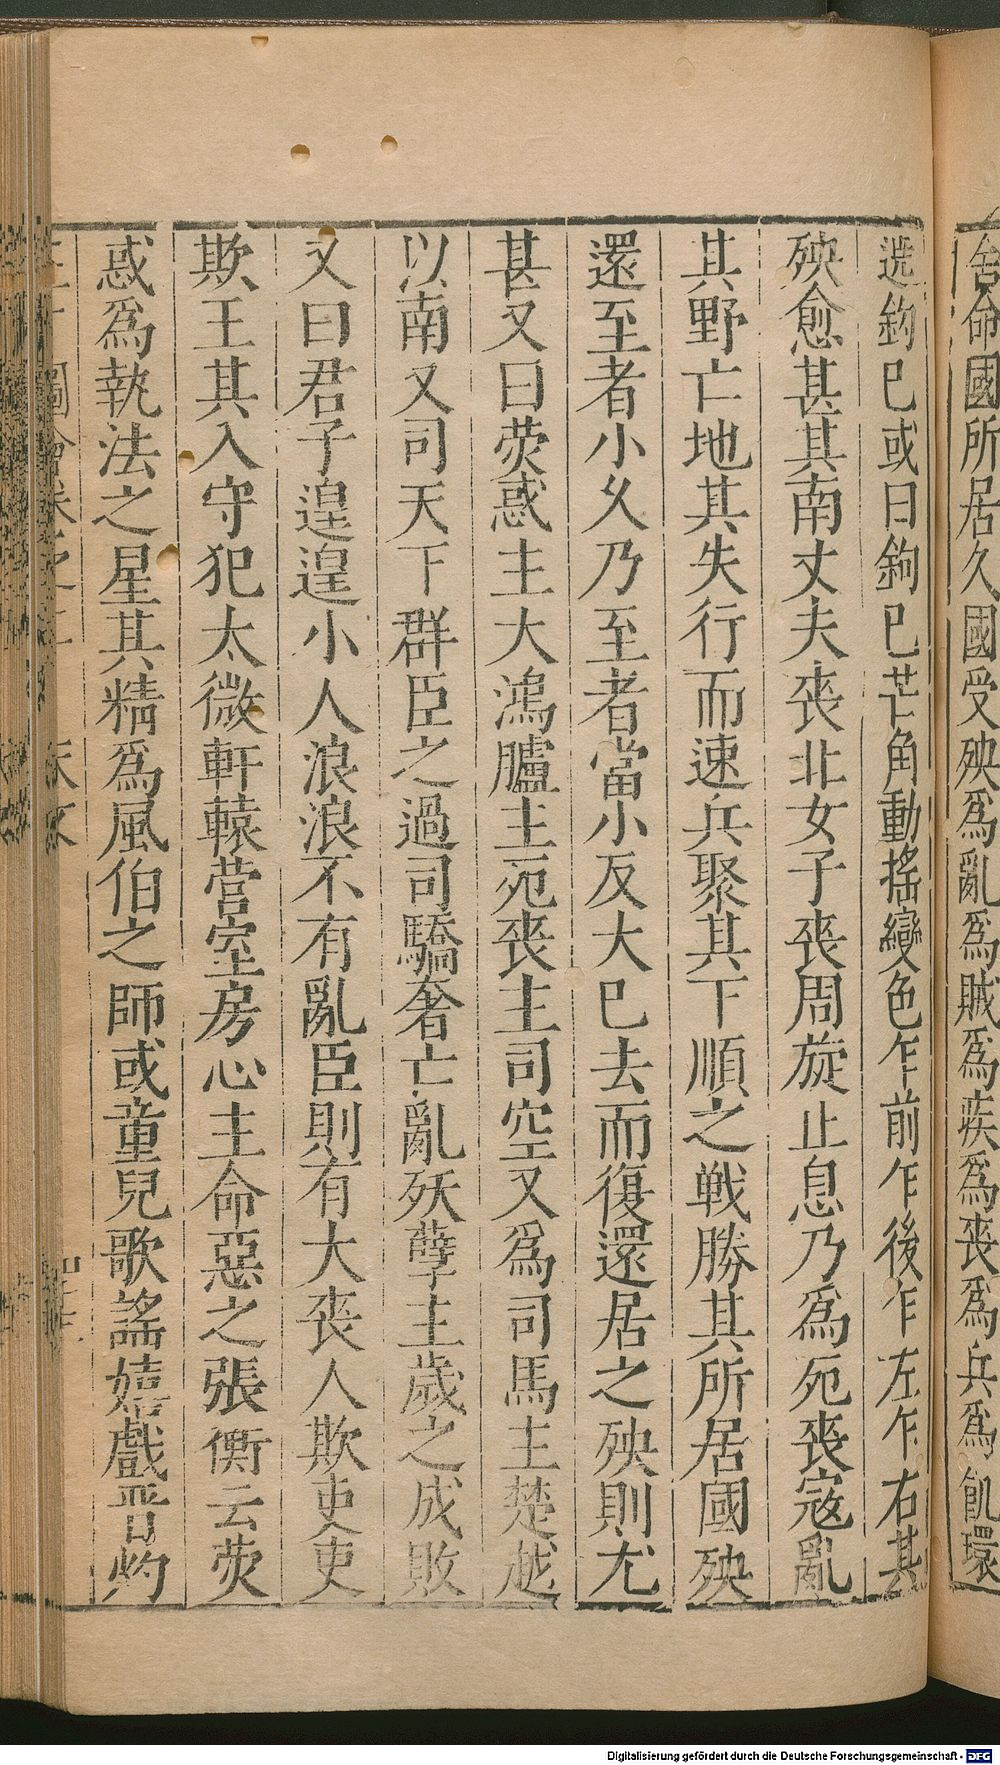 舍命國所居久國受殃爲亂爲賊爲疾爲喪爲兵爲飢環
遶鈎巳或曰鉤巳芒角動搖變色乍前乍後乍左乍右其
殃愈甚其南丈夫喪北女子喪周旋止息乃爲死喪寇亂
其野亡地其失行而速兵聚其下順之戰勝其所居國殃
還至者小久乃至者當小反大巳去而復還居之殃則尤
甚又曰熒惑主大鴻臚主死喪主司空又爲司馬主楚越
以南又司天下群臣之過司驕奢亡亂妖孽主歲之成敗
又曰君子遑遑小人浪浪不有亂臣則有大喪人欺吏吏
欺王其入守犯太微軒轅营室房心主命惡之張衡云熒
惑爲執法之星其精爲風伯之師或童兒歌謠嬉戲晋灼
Digitalisierung gefördert durch die Deutsche Forschungsgemeinschaft - DFG